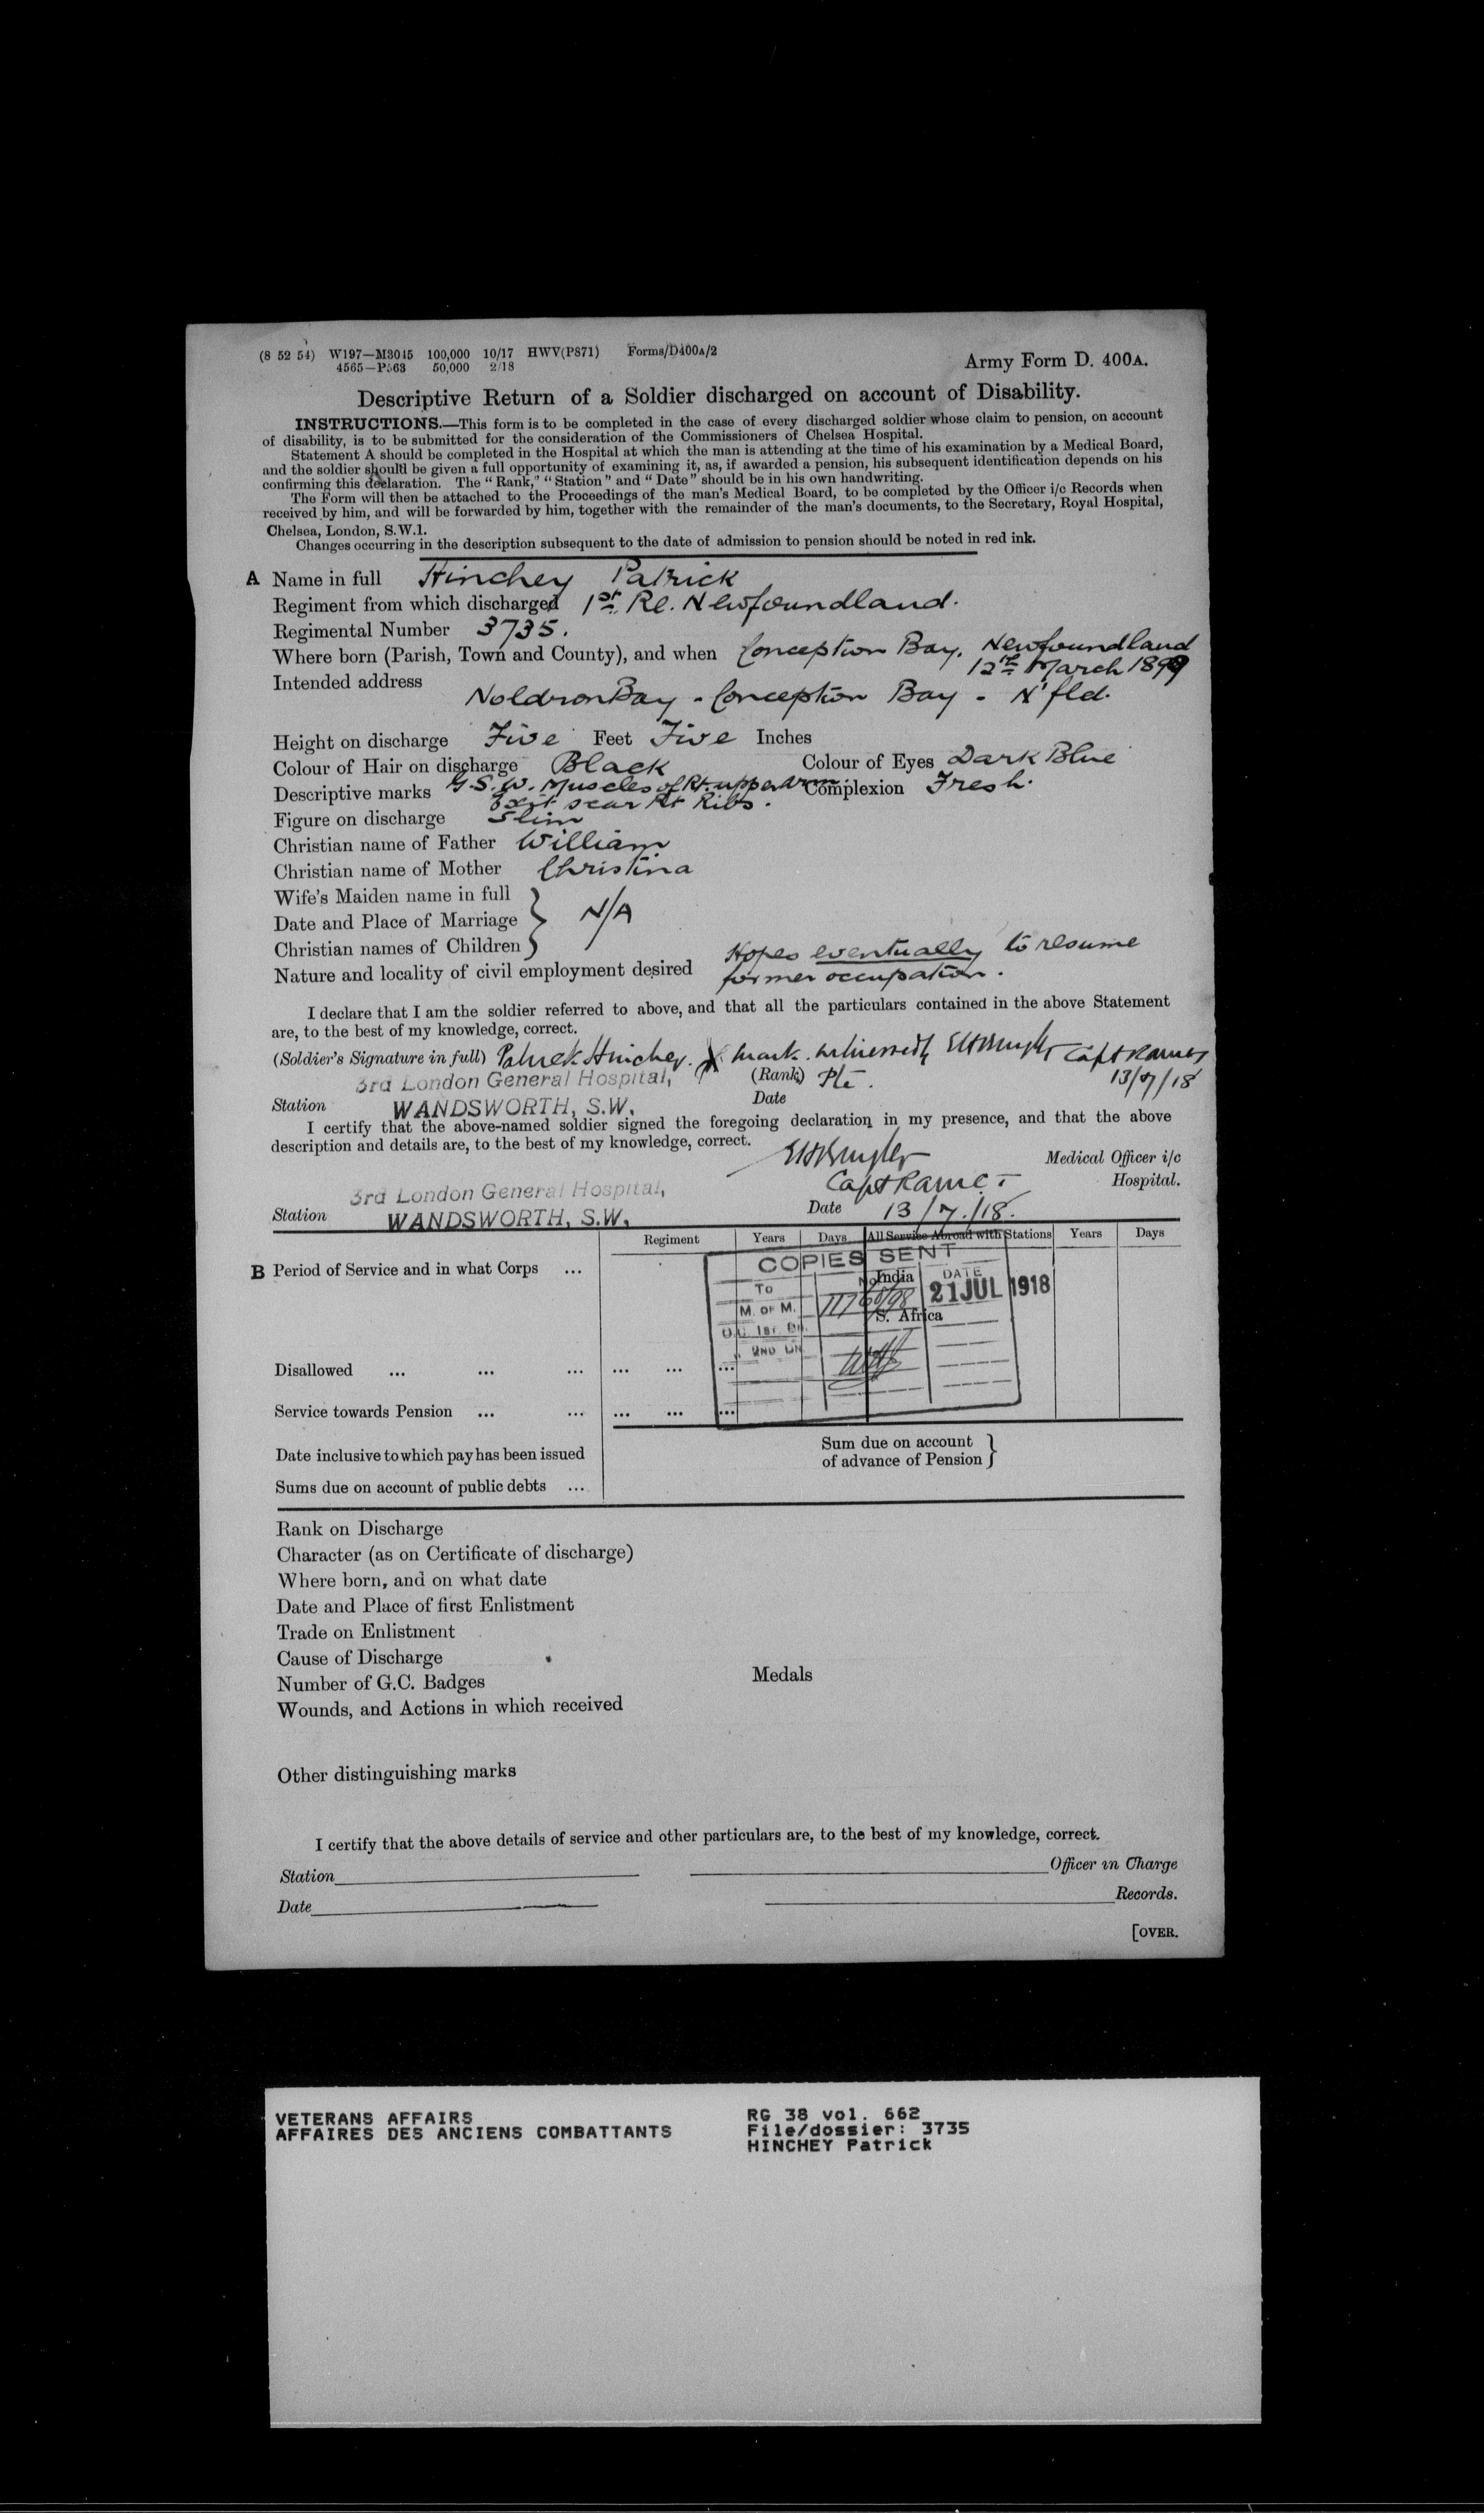 (8 52 54) W197—M3045 100,000 10/17 HWV(P871) Forms/D400A/2
4565—P563 50,000 2/18
Army Form D. 400A.
Descriptive Return of a Soldier discharged on account of Disability.
INSTRUCTIONS.—This form is to be completed in the case of every discharged soldier whose claim to pension, on account
of disability, is to be submitted for the consideration of the Commissioners of Chelsea Hospital.
Statement A should be completed in the Hospital at which the man is attending at the time of his examination by a Medical Board,
and the soldier should be given a full opportunity of examining it, as, if awarded a pension, his subsequent identification depends on his
confirming this declaration. The "Rank," "Station" and "Date" should be in his own handwriting.
The Form will then be attached to the Proceedings of the man's Medical Board, to be completed by the Officer i/c Records when
received by him, and will be forwarded by him, together with the remainder of the man's documents, to the Secretary, Royal Hospital,
Chelsea, London, S.W.1.
Changes occurring in the description subsequent to the date of admission to pension should be noted in red ink.
A Name in full Hinchey Patrick
Regiment from which discharged 1st Rl. Newfoundland.
Regimental Number 3735.
Where born (Parish, Town and County), and when Conception Bay, Newfoundland
12th March 1899
Intended address
Noldron Bay - Conception Bay - N'fld.
Height on discharge Five Feet Five Inches
Colour of Hair on discharge Black Colour of Eyes Dark Blue
Descriptive marks G.S.W. Muscles of Rt. upper Arm. Complexion Fresh.
Exit scar Rt Ribs.
Figure on discharge Slim
Christian name of Father William
Christian name of Mother Christina
Wife's Maiden name in full
Date and Place of Marriage N/A
Christian names of Children
Nature and locality of civil employment desired Hopes eventually to resume
former occupation.
I declare that I am the soldier referred to above, and that all the particulars contained in the above Statement
are, to the best of my knowledge, correct.
(Soldier's Signature in full) Patrick Hinchey. X mark. witnessed Capt RAMCT
3rd London General Hospital, (Rank) Pte. 13/7/18
Station WANDSWORTH, S.W. Date
I certify that the above-named soldier signed the foregoing declaration in my presence, and that the above
description and details are, to the best of my knowledge, correct.
Medical Officer i/c
Capt RAMC T Hospital.
3rd London General Hospital,
Station WANDSWORTH, S.W. Date 13/7/18.
Regiment Years Days All Service Abroad with Stations Years Days
B Period of Service and in what Corps ...
COPIES SENT
To No. India DATE
M. OF M. 21 JUL 1918
S. Africa
O.C. 1ST. BN.
" 2ND BN
Disallowed ... ... ... ... ... ...
Service towards Pension ... ... ... ... ...
Date inclusive to which pay has been issued
Sum due on account
of advance of Pension
Sums due on account of public debts ...
Rank on Discharge
Character (as on Certificate of discharge)
Where born, and on what date
Date and Place of first Enlistment
Trade on Enlistment
Cause of Discharge
Number of G.C. Badges Medals
Wounds, and Actions in which received
Other distinguishing marks
I certify that the above details of service and other particulars are, to the best of my knowledge, correct.
Station Officer in Charge
Date Records.
[OVER.
VETERANS AFFAIRS
AFFAIRES DES ANCIENS COMBATTANTS
RG 38 vol. 662
File/dossier: 3735
HINCHEY Patrick